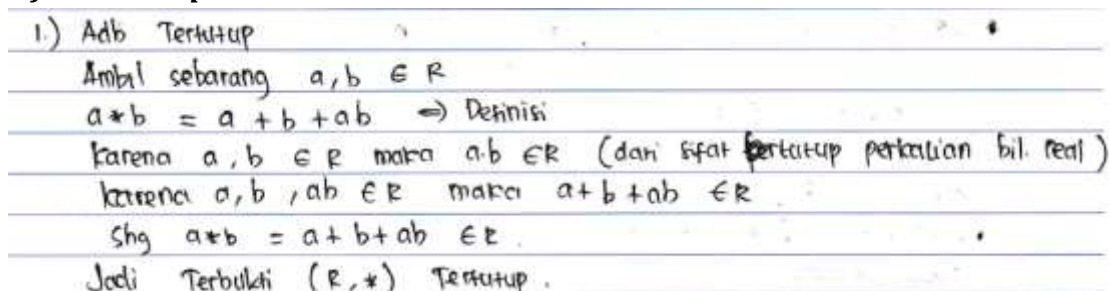 1.) Adb Tertutup
Ambil sebarang a, b ∈ R
a*b = a + b + ab => Definisi
Karena a, b ∈ R maka a.b ∈ R (dari sifat tertutup perkalian bil. real)
karena a, b, ab ∈ R maka a + b + ab ∈ R
Shg a*b = a + b + ab ∈ R.
Jadi Terbukti (R, *) Tertutup.